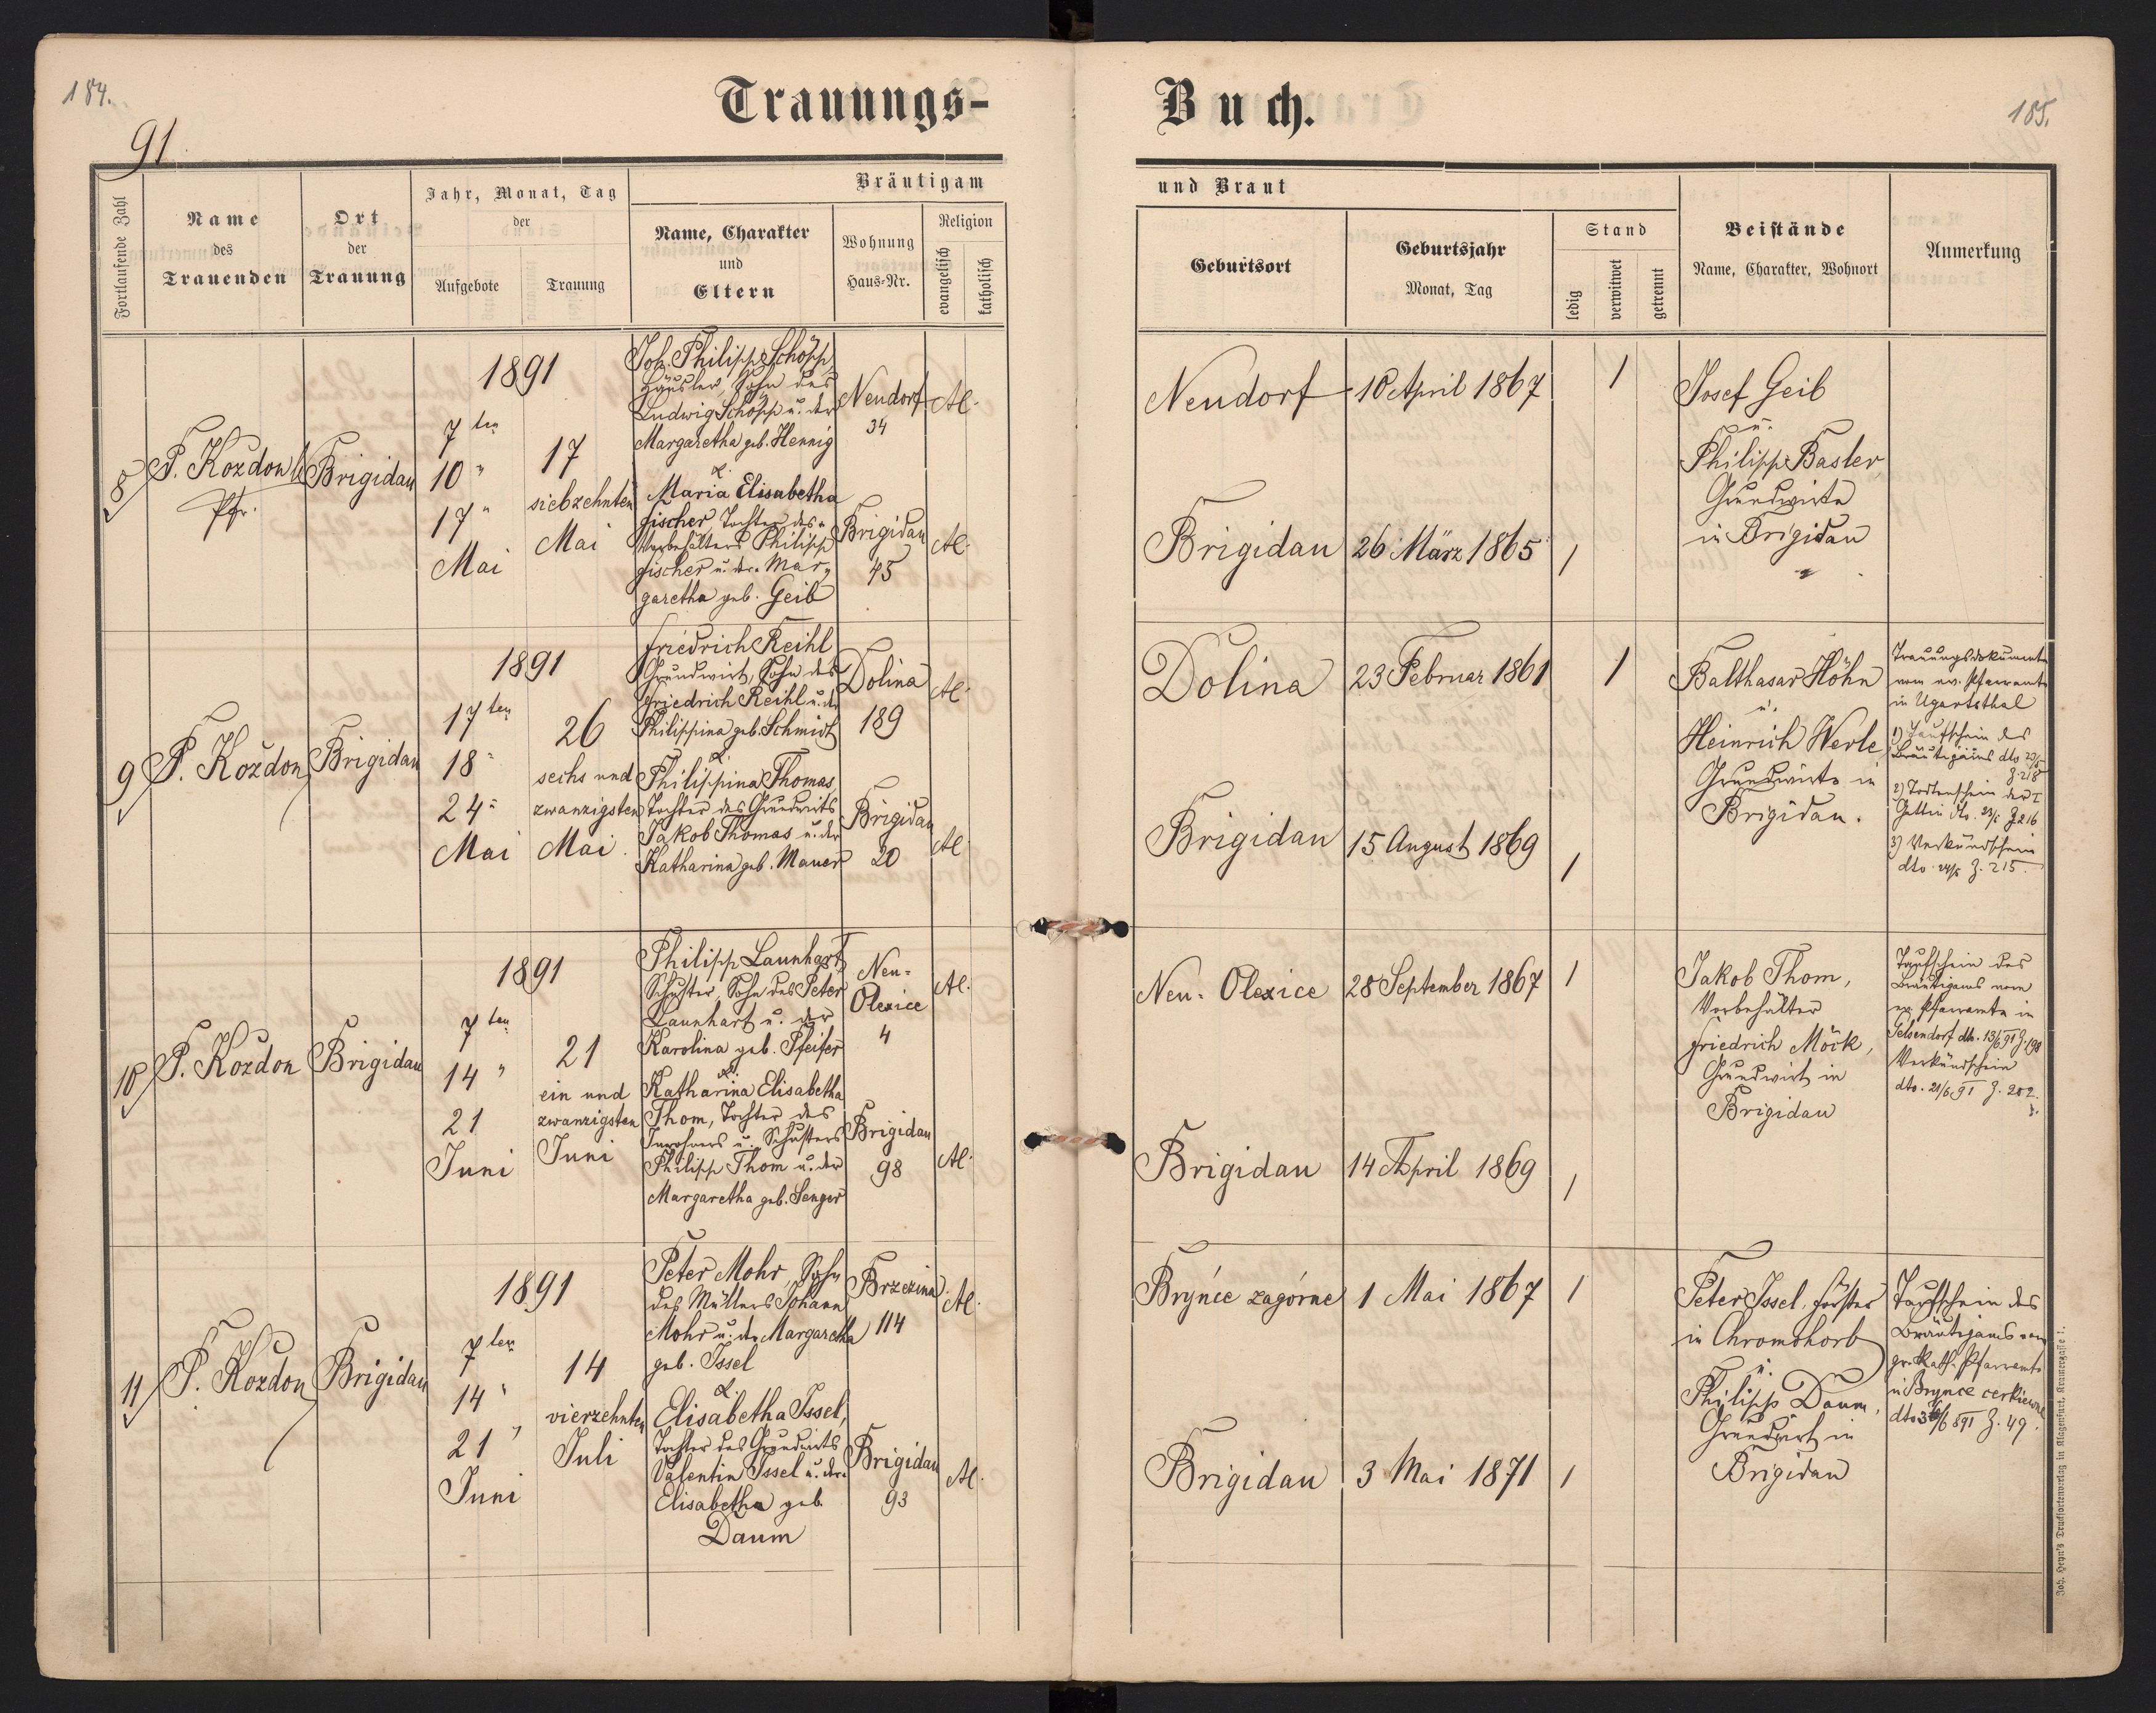 184.
91
Trauungs-
Fortlaufende Zahl
Name
des
Trauenden
Ort
der
Trauung
Jahr, Monat, Tag
der
Aufgebote
Trauung
Bräutigam
Name, Charakter
und
Eltern
Wohnung
Haus-Nr.
Religion
evangelisch
katholisch
8
P. Kozdon
Pfr.
Brigidau
1891
7ten
10 "
17 "
Mai
17
siebzehnten
Mai
Joh. Philipp Schöpp
Häusler, Sohn des
Ludwig Schöpp u. der
Margaretha geb. Hennig
&
Maria Elisabetha
Fischer, Tochter des
Vorbehälters Philipp
Fischer u. der Mar-
garetha geb. Geib
Neudorf
34
Brigidau
45
AC.
AC.
9
P. Kozdon
Brigidau
1891
17ten
18 "
24 "
Mai
26
sechs und
zwanzigsten
Mai
Friedrich Reihl
Grundwirt, Sohn des
Friedrich Reihl u. der
Philippina geb. Schmidt
&
Philippina Thomas,
Tochter des Grundwirts
Jakob Thomas u. der
Katharina geb. Mauer
Dolina
189
Brigidau
20
AC.
AC.
10
P. Kozdon
Brigidau
1891
7ten
14 "
21
Juni
21
ein und
zwanzigsten
Juni
Philipp Launhart,
Schuster, Sohn des Peter
Launhart u. der
Karolina geb. Pfeifer
&
Katharina Elisabetha
Thom, Tochter des
Inwohners u. Schusters
Philipp Thom u. der
Margaretha geb. Senger
Neu-
Olexice
4
Brigidau
98
AC.
AC.
11
P. Kozdon
Brigidau
1891
7ten
14 "
21 "
Juni
14
vierzehnten
Juli
Peter Mohr, Sohn
des Müllers Johann
Mohr u. der Margaretha
geb. Issel
&
Elisabetha Issel,
Tochter des Grundwirts
Valentin Issel u. der
Elisabetha geb.
Daum
Brzezina
114
Brigidau
93
AC.
AC.
Buch.
185.
und Braut
Geburtsort
Geburtsjahr
Monat, Tag
Stand
ledig
verwitwet
getrennt
Beistände
Name, Charakter, Wohnort
Anmerkung
Neudorf
10 April 1867
1
Brigidau
26 März 1865
1
Josef Geib
u.
Philipp Basler,
Grundwirte
in Brigidau
Dolina
23 Februar 1861
1
Brigidau
15 August 1869
1
Balthasar Höhn
u.
Heinrich Werle,
Grundwirte in
Brigidau.
Trauungsdokumente
vom ev. Pfarramte
in Ugartsthal
1) Taufschein des
Bräutigams dto
Z. 218
2) Todtenschein der I
Gattin dto. Z 216
3) Verkündschein
dto. 24/5 Z. 215.
Neu-Olexice
28 September 1867
1
Brigidau
14 April 1869
1
Jakob Thom,
Vorbehälter
Friedrich Möck,
Grundwirt in
Brigidau
Taufschein des
Bräutigams vom
ev. Pfarramte in
Gelsendorf dto. 13/6 91 Z. 198
Verkündschein
dto. 21/6 91 Z. 202.
Brýnce zagórne
1 Mai 1867
1
Brigidau
3 Mai 1871
1
Peter Issel, Förster
in Chromohorb
u.
Philipp Daum,
Grundwirt in
Brigidau
Taufschein des
Bräutigams vom
gr. kath. Pfarramte
in Brynce cerkiewne
dto 891 Z. 49.
Joh. Heyn's Drucksortenverlag in Klagenfurt, Kramergasse 1.